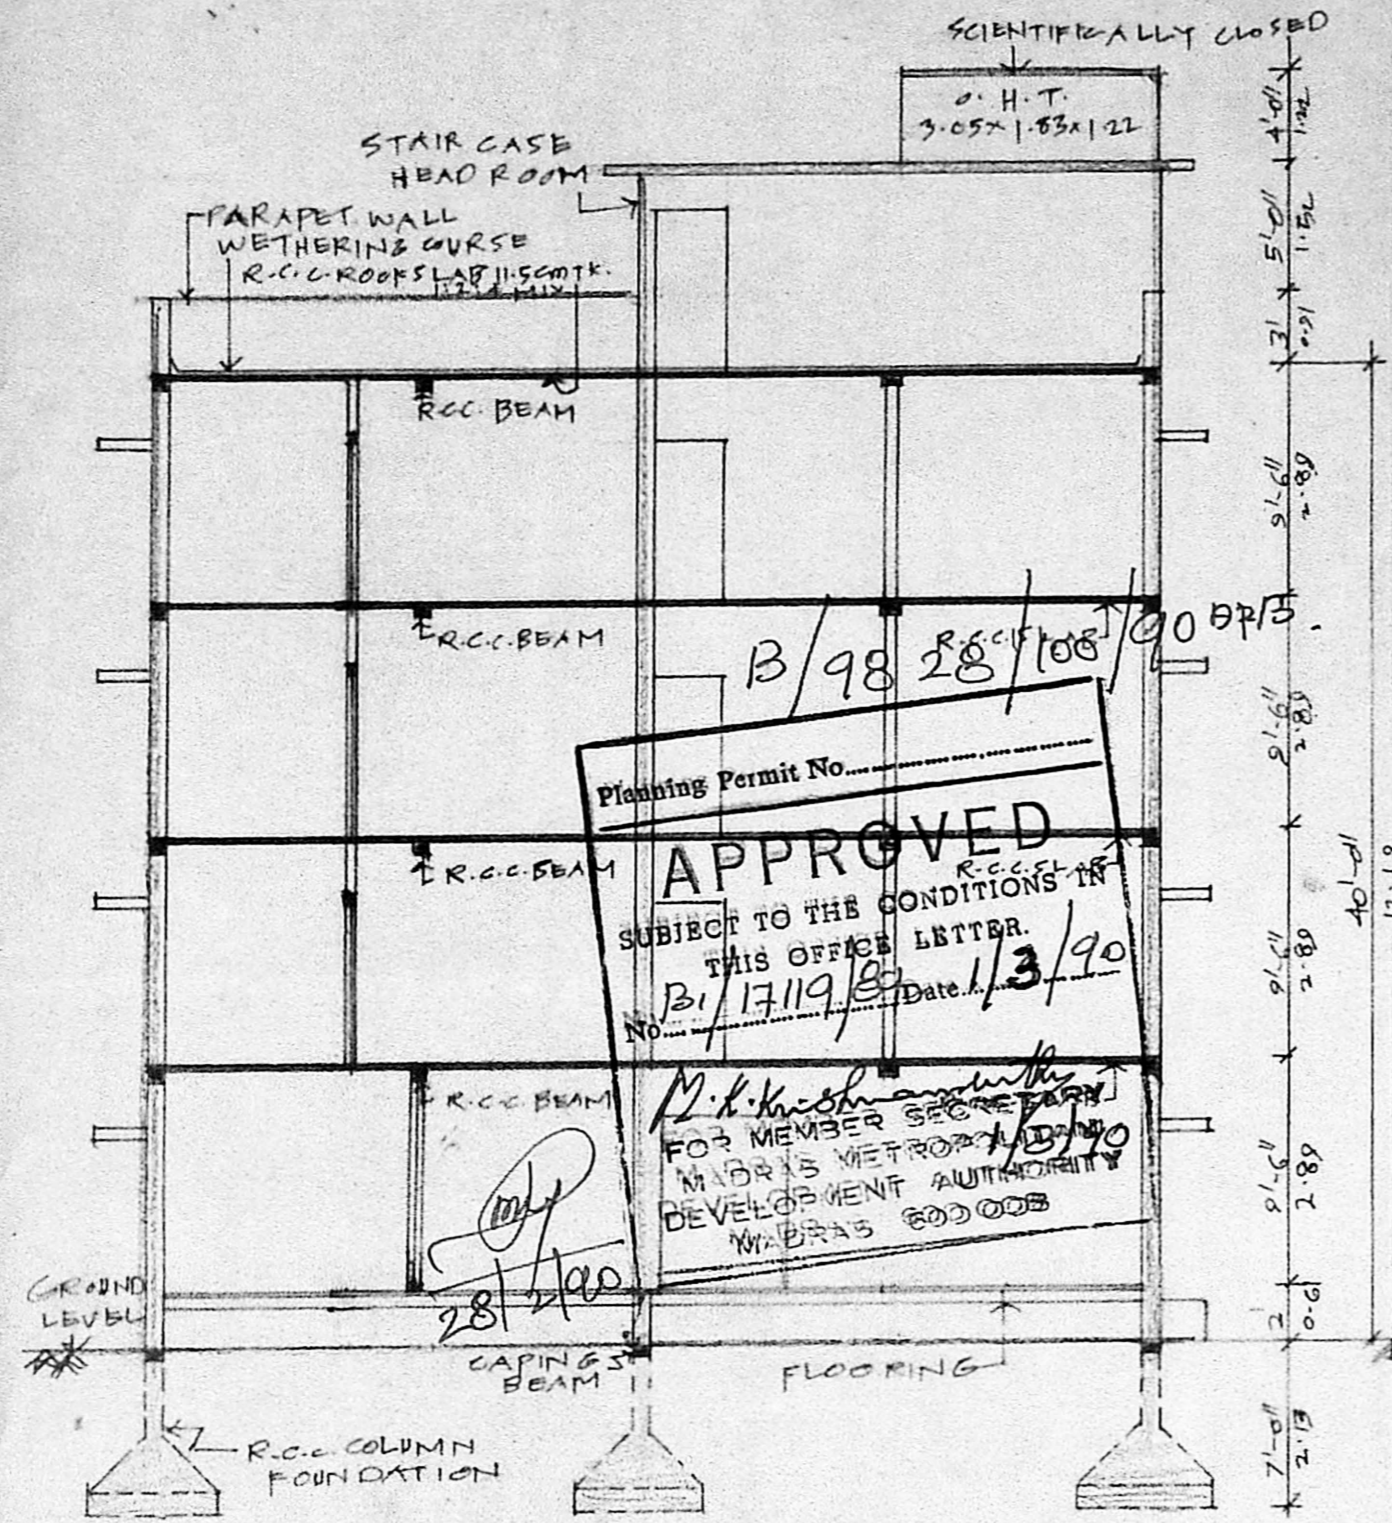 SCIENTIFICALLY CLOSED
O.H.T.
3.05x1.83x1.22
STAIR CASE
HEAD ROOM
PARAPET WALL
WETHERING COURSE
R.C.C. ROOF SLAB 11.5cm TK.
R.C.C. BEAM
R.C.C. BEAM
R.C.C. SLAB
B/98 28/100/90
R.C.C. BEAM
R.C.C. SLAB
R.C.C. BEAM
Planning Permit No.
APPROVED
SUBJECT TO THE CONDITIONS IN
THIS OFFICE LETTER.
No. B1/17119/89 Date 1/3/90
FOR MEMBER SECRETARY
1/3/90
MADRAS METROPOLITAN
DEVELOPMENT AUTHORITY
MADRAS 600 008
28/2/90
GROUND
LEVEL
CAPING
BEAM
FLOORING
R.C.C. COLUMN
FOUNDATION
4'-0" 1.22
5'-0" 1.52
3' 0.91
9'-6" 2.89
9'-6" 2.89
9'-6" 2.89
9'-6" 2.89
2 0.61
7'-0" 2.13
40'-0"